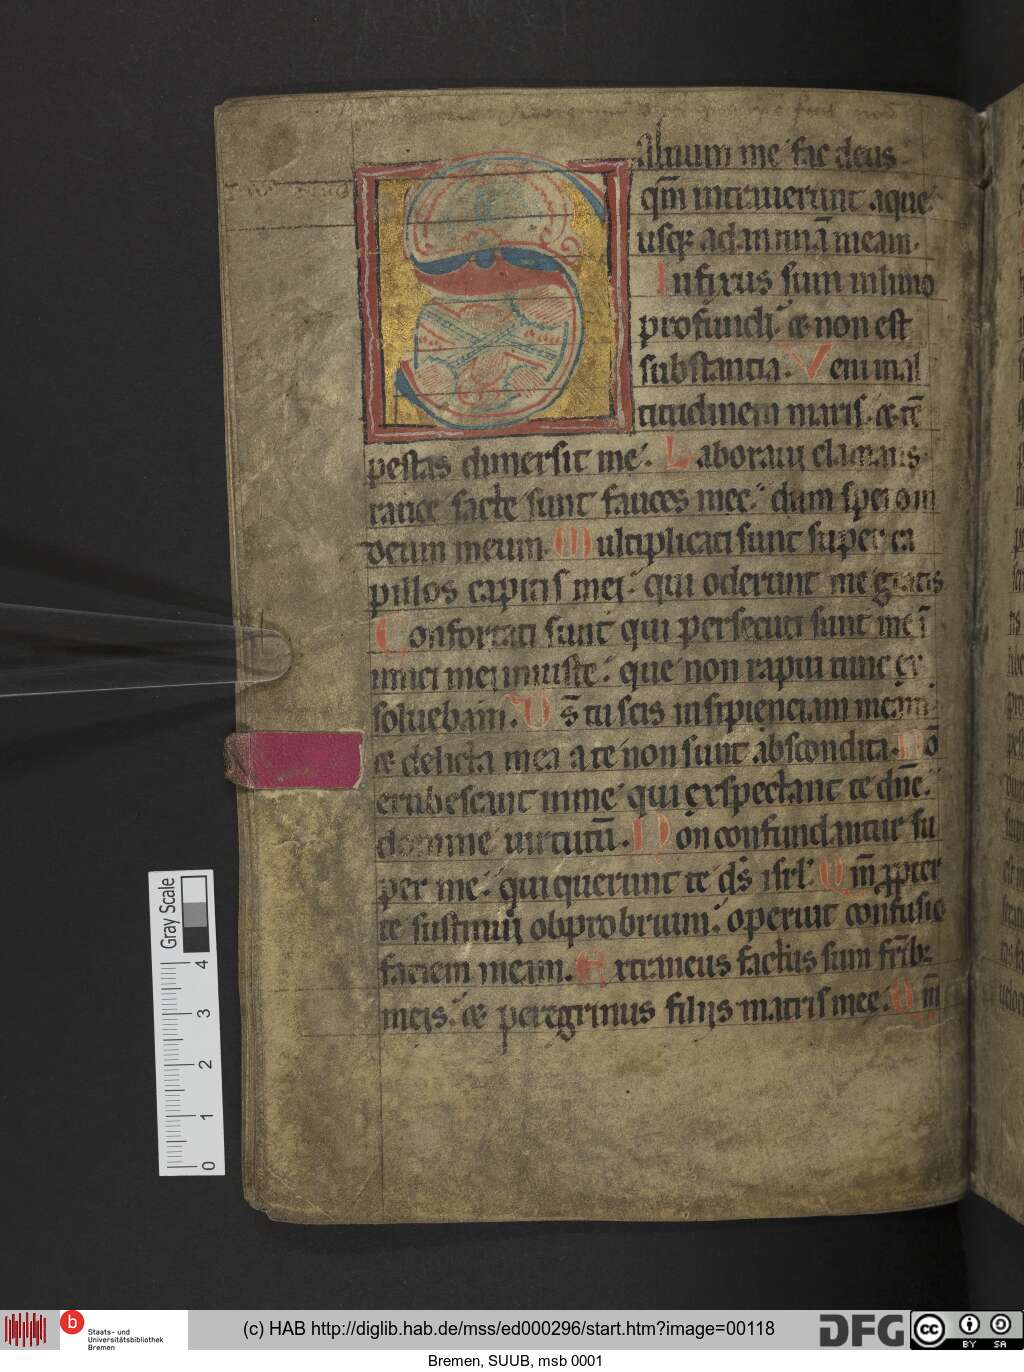 Aluum me fac deus
qm̄ intrauerunt aque
usq; ad animā meam.
Infixus sum in limo
profundi. & non est
substantia. Veni in al
titudinem maris. & tē
pestas dimersit me. Laboraui clamans
rauce facte sunt fauces mee. dum spero in
deum meum. Multiplicati sunt super ca
pillos capitis mei. qui oderunt me gratis
Confortati sunt qui persecuti sunt me ī
imici mei iniuste. que non rapui tunc ex
soluebam. Ds̄ tu scis insipientiam meam.
& delicta mea a te non sunt abscondita. Nō
erubescant in me qui expectant te dn̄e.
domine uirtutū. Non confundantur su
per me. qui querunt te ds̄ isrl. Qm̄ ꝓpter
te sustinui obprobrium. operuit confusio
faciem meam. Extraneus factus sum fr̄ib;
meis. & peregrinus filijs matris mee. Qm̄
Gray Scale
4
3
2
1
0
b
Staats- und
Universitätsbibliothek
Bremen
(c) HAB http://diglib.hab.de/mss/ed000296/start.htm?image=00118
DFG
cc BY SA
Bremen, SUUB, msb 0001